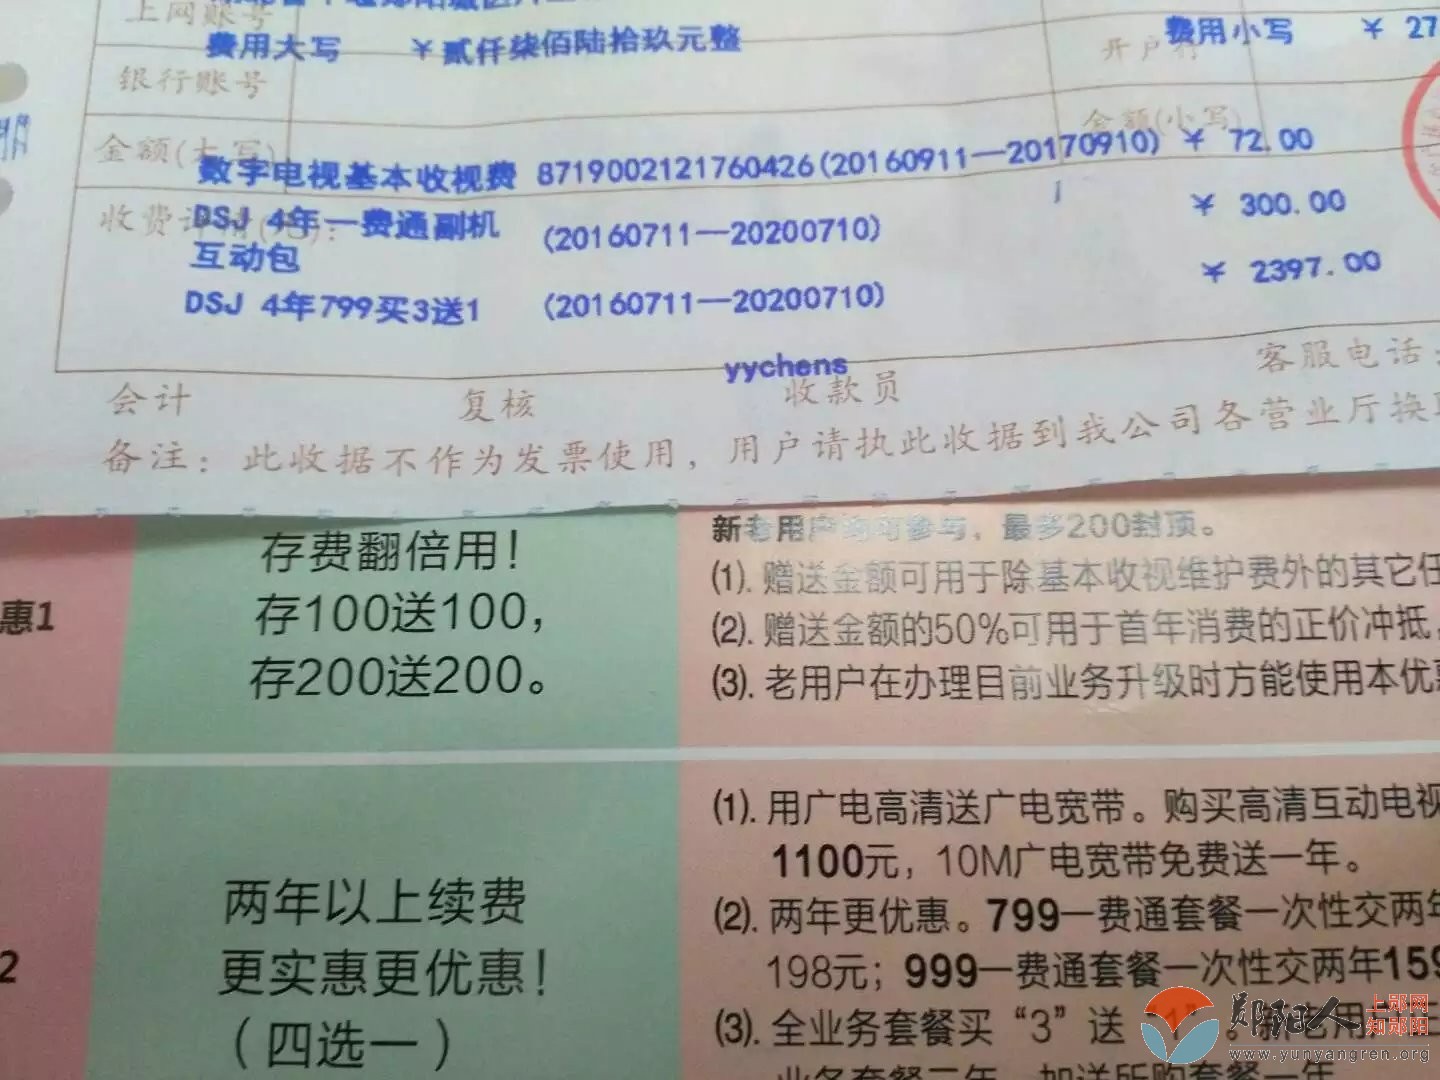 上网账号
费用大写 ￥贰仟柒佰陆拾玖元整 费用小写 ￥ 27
银行账号 开户行
金额(大写) 金额(小写)
数字电视基本收视费 8719002121760426(20160911—20170910) ￥ 72.00
收费详情(元):
DSJ 4年一费通副机 (20160711—20200710) ￥ 300.00
互动包
DSJ 4年799买3送1 (20160711—20200710) ￥ 2397.00
yychens
会计 复核 收款员 客服电话:
备注: 此收据不作为发票使用, 用户请执此收据到我公司各营业厅换
惠1
存费翻倍用!
存100送100,
存200送200。
新老用户均可参与, 最多200封顶。
(1). 赠送金额可用于除基本收视维护费外的其它任
(2). 赠送金额的50%可用于首年消费的正价冲抵,
(3). 老用户在办理目前业务升级时方能使用本优惠
2
两年以上续费
更实惠更优惠!
(四选一)
(1). 用广电高清送广电宽带。购买高清互动电视
1100元, 10M广电宽带免费送一年。
(2). 两年更优惠。799一费通套餐一次性交两年
198元; 999一费通套餐一次性交两年159
(3). 全业务套餐买“3”送“1”。新老用户
业务套餐三年, 加送所购套餐一年
郧阳人
上郧网
知郧阳
www.yunyangren.org